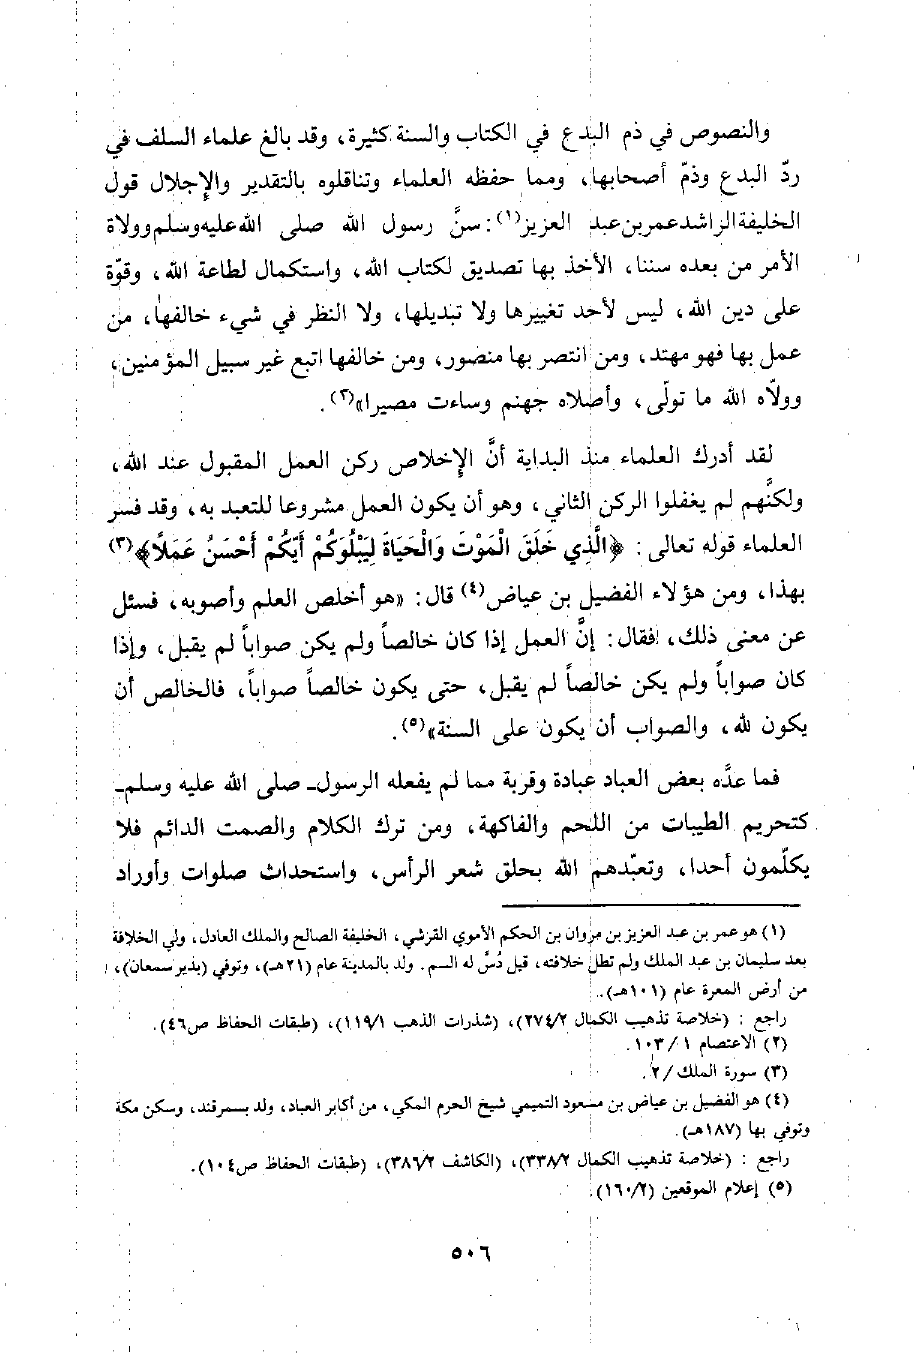 والنصوص في ذم البدع في الكتاب والسنة كثيرة، وقد بالغ علماء السلف في
ردّ البدع وذمّ أصحابها، ومما حفظه العلماء وتناقلوه بالتقدير والإجلال قول
الخليفة الراشد عمر بن عبد العزيز(١): سنَّ رسول الله صلى الله عليه وسلم وولاة
الأمر من بعده سننا، الأخذ بها تصديق لكتاب الله، واستكمال لطاعة الله، وقوّة
على دين الله، ليس لأحد تغييرها ولا تبديلها، ولا النظر في شيء خالفها، من
عمل بها فهو مهتد، ومن انتصر بها منصور، ومن خالفها اتبع غير سبيل المؤمنين،
وولّاه الله ما تولّى، وأصلاه جهنم وساءت مصيرا»(٢).
لقد أدرك العلماء منذ البداية أنَّ الإخلاص ركن العمل المقبول عند الله،
ولكنَّهم لم يغفلوا الركن الثاني، وهو أن يكون العمل مشروعا للتعبد به، وقد فسر
العلماء قوله تعالى: ﴿الَّذِي خَلَقَ الْمَوْتَ وَالْحَيَاةَ لِيَبْلُوَكُمْ أَيّكُمْ أَحْسَنُ عَمَلاً﴾(٣)
بهذا، ومن هؤلاء الفضيل بن عياض(٤) قال: «هو أخلص العلم وأصوبه، فسئل
عن معنى ذلك، فقال: إنَّ العمل إذا كان خالصاً ولم يكن صواباً لم يقبل، وإذا
كان صواباً ولم يكن خالصاً لم يقبل، حتى يكون خالصاً صواباً، فالخالص أن
يكون لله، والصواب أن يكون على السنة»(٥).
فما عدَّه بعض العباد عبادة وقربة مما لم يفعله الرسول ـ صلى الله عليه وسلم ـ
كتحريم الطيبات من اللحم والفاكهة، ومن ترك الكلام والصمت الدائم فلا
يكلّمون أحدا، وتعبّدهم الله بحلق شعر الرأس، واستحداث صلوات وأوراد
(١) هو عمر بن عبد العزيز بن مروان بن الحكم الأموي القرشي، الخليفة الصالح والملك العادل، ولي الخلافة
بعد سليمان بن عبد الملك ولم تطل خلافته، قيل دُسَّ له السم. ولد بالمدينة عام (٢١هـ)، وتوفي (بدير سمعان)،
من أرض المعرة عام (١٠١هـ).
راجع : (خلاصة تذهيب الكمال ٢٧٤/٢)، (شذرات الذهب ١١٩/١)، (طبقات الحفاظ ص٤٦).
(٢) الاعتصام ١٠٣/١.
(٣) سورة الملك/٢.
(٤) هو الفضيل بن عياض بن مسعود التميمي شيخ الحرم المكي، من أكابر العباد، ولد بسمرقند، وسكن مكة
وتوفي بها (١٨٧هـ).
راجع : (خلاصة تذهيب الكمال ٣٣٨/٢)، (الكاشف ٣٨٦/٢)، (طبقات الحفاظ ص١٠٤).
(٥) إعلام الموقعين (١٦٠/٢).
٥٠٦